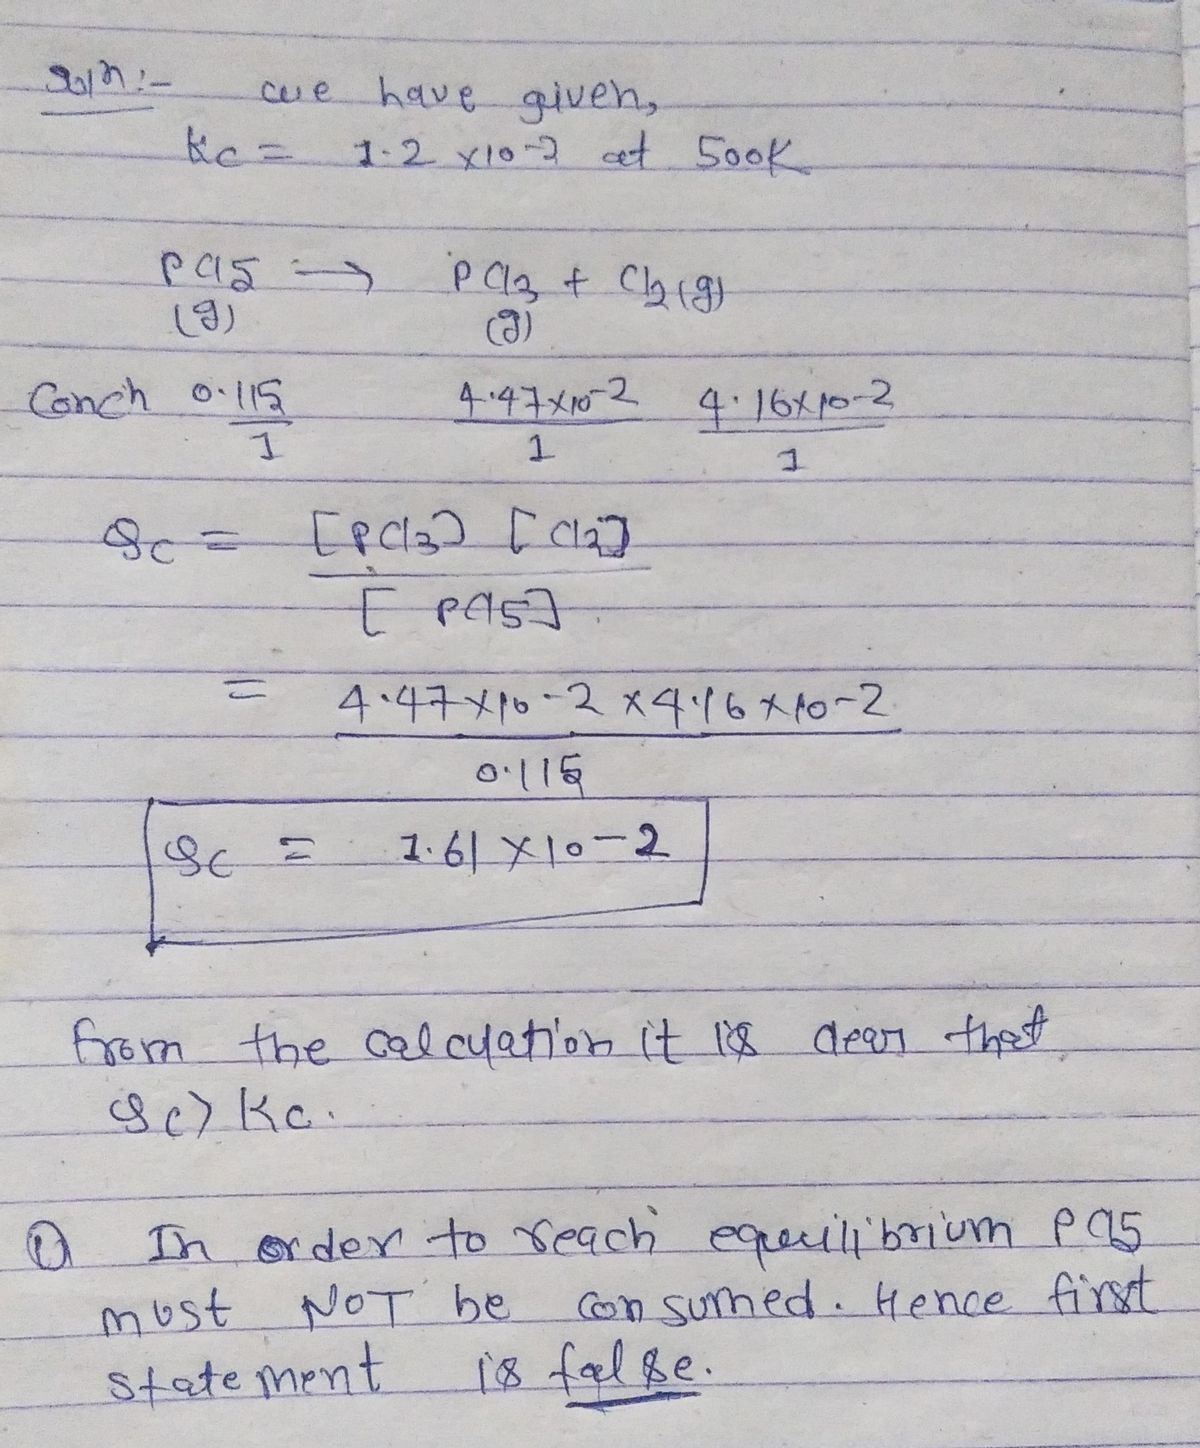 Soln:- we have given,
Kc = 1.2 x10-2 at 500K
PCl5 → PCl3 + Cl2(g)
(g) (g)
Conch 0.115/1 4.47x10-2/1 4.16x10-2/1
Qc = [PCl3] [Cl2]
[ PCl5]
= 4.47x10-2 x 4.16x10-2
0.115
Qc = 1.61 x10-2
from the calculation it is clear that
Qc > Kc.
① In order to reach equilibrium PCl5
must NOT be consumed. Hence first
statement is false.